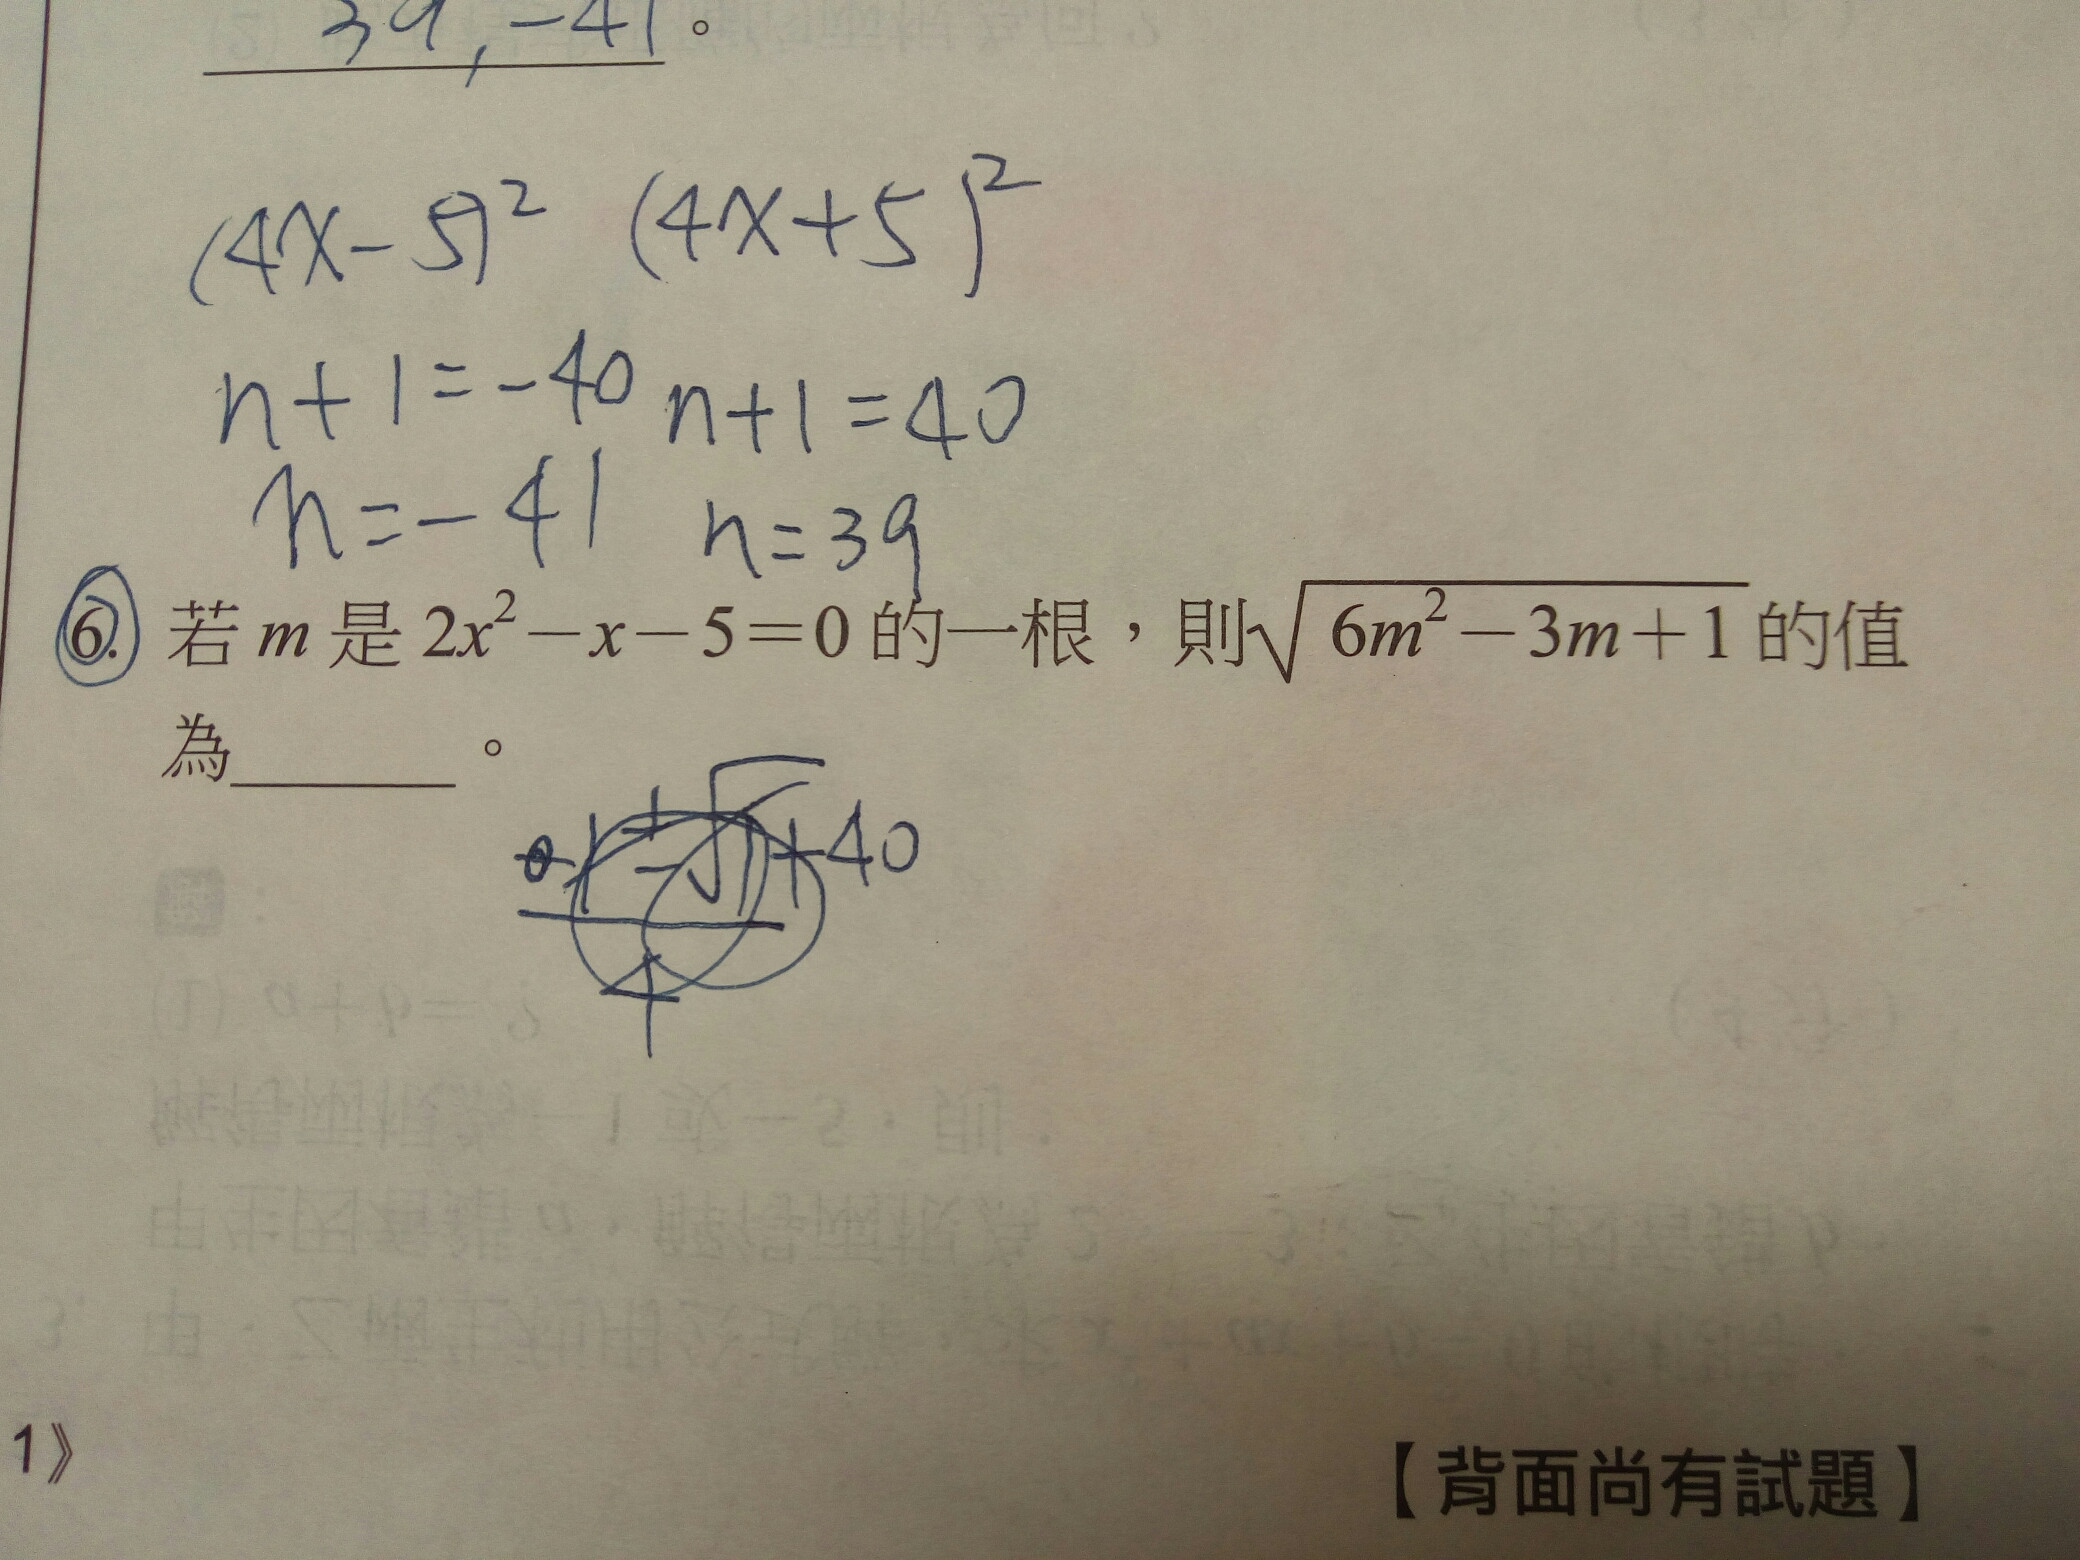 39, -41。
(4x-5)² (4x+5)²
n+1=-40 n+1=40
n=-41 n=39
6. 若 m 是 2x²-x-5=0 的一根，則√(6m²-3m+1) 的值
為______。
1±√1+40
4
1》
【背面尚有試題】